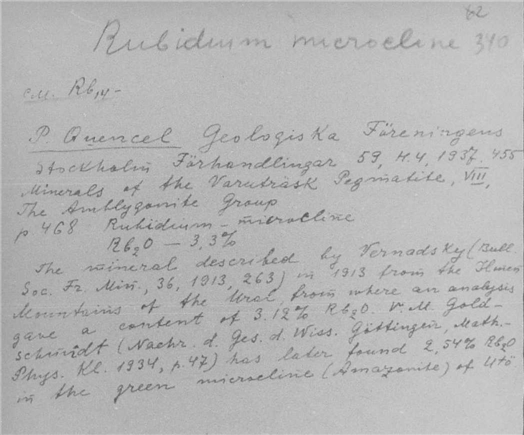 62
Rubidium microcline 340
см. Rb₁₄-
P. Quencel Geologiska Föreningens
Stockholm Förhandlingar 59, H.4, 1937 455
Minerals of the Varuträsk Pegmatite, VIII,
The Amblygonite Group
p 468 Rubidium-microcline
Rb₂O — 3,3%
The mineral described by Vernadsky (Bull.
Soc. Fr. Min., 36, 1913, 263) in 1913 from the Ilmen
Mountains of the Ural, from where an analysis
gave a content of 3.12% Rb₂O. V. M. Gold-
schmidt (Nachr. d. Ges. d. Wiss. Göttingen, Math-
Phys. Kl. 1934, p.47) has later found 2,54% Rb₂O
in the green microcline (Amazonite) of Utö